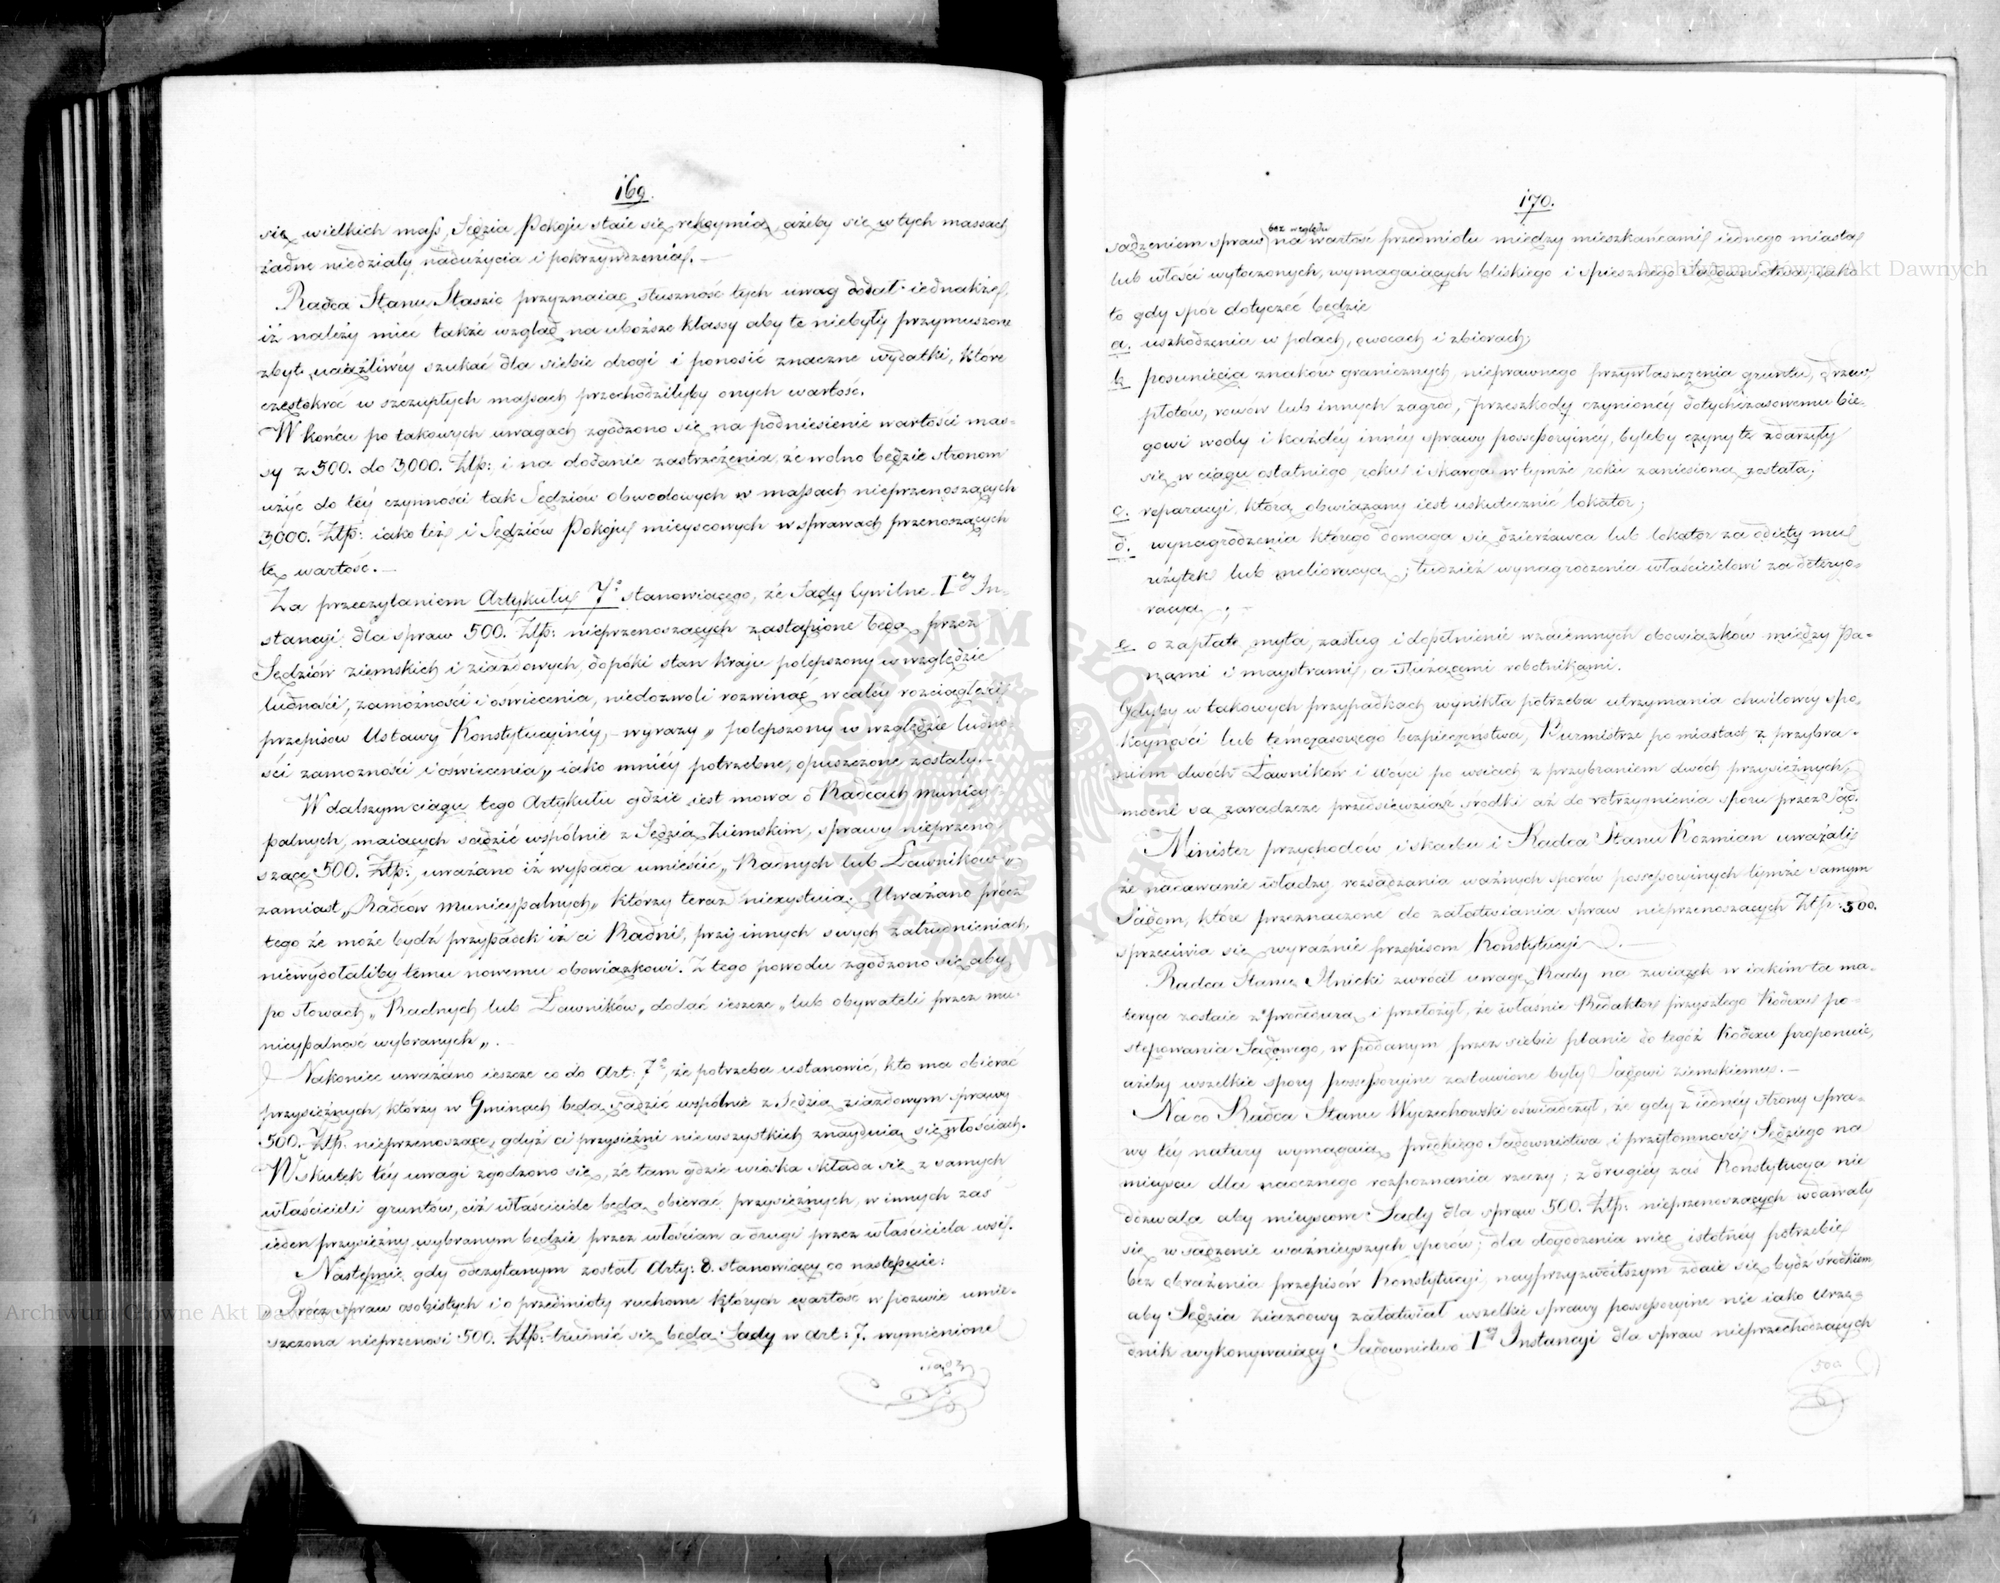 169.
się wielkich mass, Sędzia Pokoju staie się rękoymią, ażeby się w tych massach
żadne niedziały nadużycia i pokrzywdzenia. –
Radca Stanu Staszic przyznaiąc słuszność tych uwag dodał iednakże,
iż należy mieć także wzgląd na uboższe klassy aby te niebyły przymuszone
zbyt uciążliwéy szukać dla siebie drogi i ponosić znaczne wydatki, które
częstokroć w szczupłych massach przechodziłyby onych wartość.
W końcu po takowych uwagach zgodzono się na podniesienie wartości mas-
sy z 500. do 3,000. Złp: i na dodanie zastrzeżenia, że wolno będzie stronom
użyć do téy czynności tak Sędziów obwodowych w massach nieprzenoszących
3,000. Złp: iako też i Sędziów Pokoju mieyscowych w sprawach przenoszących
tę wartość. –
Za przeczytaniem Artykułu 7º stanowiącego, że Sądy Cywilne Iey In-
stancyi dla spraw 500. Złp: nieprzenoszących zastąpione będą przez
Sędziów ziemskich i ziazdowych, dopóki stan kraju polepszony w względzie
ludności, zamożności i oświecenia, niedozwoli rozwinąć w całéy rozciągłości
przepisów Ustawy Konstytucyinéy, – wyrazy „ polepszony w względzie ludno-
ści zamożności i oświecenia„ iako mniéy potrzebne, opuszczone zostały. –
W dalszym ciągu tego Artykułu gdzie iest mowa o Radcach municy-
palnych, maiących sądzić wspólnie z Sędzią Ziemskim, sprawy nieprzeno-
szące 500. Złp:, uważano iż wypada umieścić „ Radnych lub Ławników „
zamiast „Radców municypalnych„ którzy teraz nieexystuią. Uważano prócz
tego że może bydź przypadek iż ci Radni, przy innych swych zatrudnieniach,
niewydołaliby temu nowemu obowiązkowi. Z tego powodu zgodzono się aby
po słowach „ Radnych lub Ławników„ dodać ieszcze „lub obywateli przez mu-
nicypalność wybranych„. –
Nakoniec uważano ieszcze co do Art: 7º, że potrzeba ustanowić, kto ma obierać
przysiężnych, którzy w Gminach będą sądzić wspólnie z Sędzią ziazdowym sprawy
500. Złp. nieprzenoszące, gdyż ci przysiężni niewszystkich znayduią się włościach.
W skutek téy uwagi zgodzono się, że tam gdzie wioska składa się z samych
właścicieli gruntów, ciż właściciele będą obierać przysiężnych, w innych zaś
ieden przysiężny wybranym będzie przez włościan a drugi przez właściciela wsi.
Następnie gdy odczytanym został Arty: 8. stanowiący co następuie:
„ Prócz spraw osobistych i o przedmioty ruchome których wartość w pozwie umie-
szczona nieprzenosi 500. Złp: trudnić się będą Sądy w Art: 7. wymienione
sądze..
170.
sądzeniem spraw bez względu na wartość przedmiotu między mieszkańcami iednego miasta
lub włości wytoczonych, wymagaiących bliskiego i spiesznego Sądownictwa, iako
to gdy spór dotyczeć będzie
a. uszkodzenia w polach, owocach i zbiorach;
b. posunięcia znaków granicznych, nieprawnego przywłaszczenia gruntu, drzew,
płotów, rowów lub innych zagród, przeszkody czynionéy dotychczasowemu bie-
gowi wody i każdéy innéy sprawy possessoryinéy, byleby czyny te zdarzyły
się w ciągu ostatniego roku i skarga w tymże roku zaniesiona została;
c. reparacyi, którą obwiązany iest uskutecznić lokator;
d. wynagrodzenia którego domaga się dzierżawca lub lokator za odięty mu
użytek lub melioracyą; tudzież wynagrodzenia właścicielowi za deteryo-
racyą ; –
e. o zapłatę myta, zasług i dopełnienie wzaiemnych obowiązków między Pa-
nami i maystrami, a służącemi robotnikami.
Gdyby w takowych przypadkach wynikła potrzeba utrzymania chwilowey spo-
koyności lub tymczasowego bezpieczeństwa, Burmistrze po miastach z przybra-
niem dwóch Ławników i Woyci po wsiach z przybraniem dwóch przysiężnych,
mocni są zaradcze przedsięwziąść środki aż do rostrzygnienia sporu przez Sąd.
Minister przychodów i skarbu i Radca Stanu Kozmian uważali
że nadawanie władzy rozsądzania ważnych sporów possessorinych tymże samym
Sądom, które przeznaczone do załatwiania spraw nieprzenoszących Złp: 500.
sprzeciwia się wyraźnie przepisom Konstytucyi. –
Radca Stanu Ilnicki zwrócił uwagę Rady na związek w iakim ta ma-
terya zostaie z procedurą i przełożył, że właśnie Redaktor przyszłego Kodexu po-
stępowania Sądowego, w podanym przez siebie planie do tegoż Kodexu proponuie,
ażeby wszelkie spory possessoryine zostawione były Sądowi ziemskiemu. –
Na co Radca Stanu Wyczechowski oświadczył, że gdy z iednéy strony spra-
wy téy natury wymagaią prędkiego Sądownictwa i przytomności Sędziego na
mieyscu dla naocznego rozpoznania rzeczy; z drugiéy zaś Konstytucya nie
dozwala aby mieyscowe Sądy dla spraw 500. Złp: nieprzenoszących wdawały
się w sądzenie ważnieyszych sporów; dla dogodzenia więc istotnéy potrzebie
bez obrażenia przepisów Konstytucyi, nayprzyzwoitszym zdaie się bydź środkiem
aby Sędzia Ziazdowy załatwiał wszelkie sprawy possessoryine nie iako urzę-
dnik wykonywaiący Sądownictwo Iey Instancyi dla spraw nieprzechodzących
500
Archiwum Główne Akt Dawnych
Archiwum Główne Akt Dawnych
ARCHIWUM GŁÓWNE AKT DAWNYCH